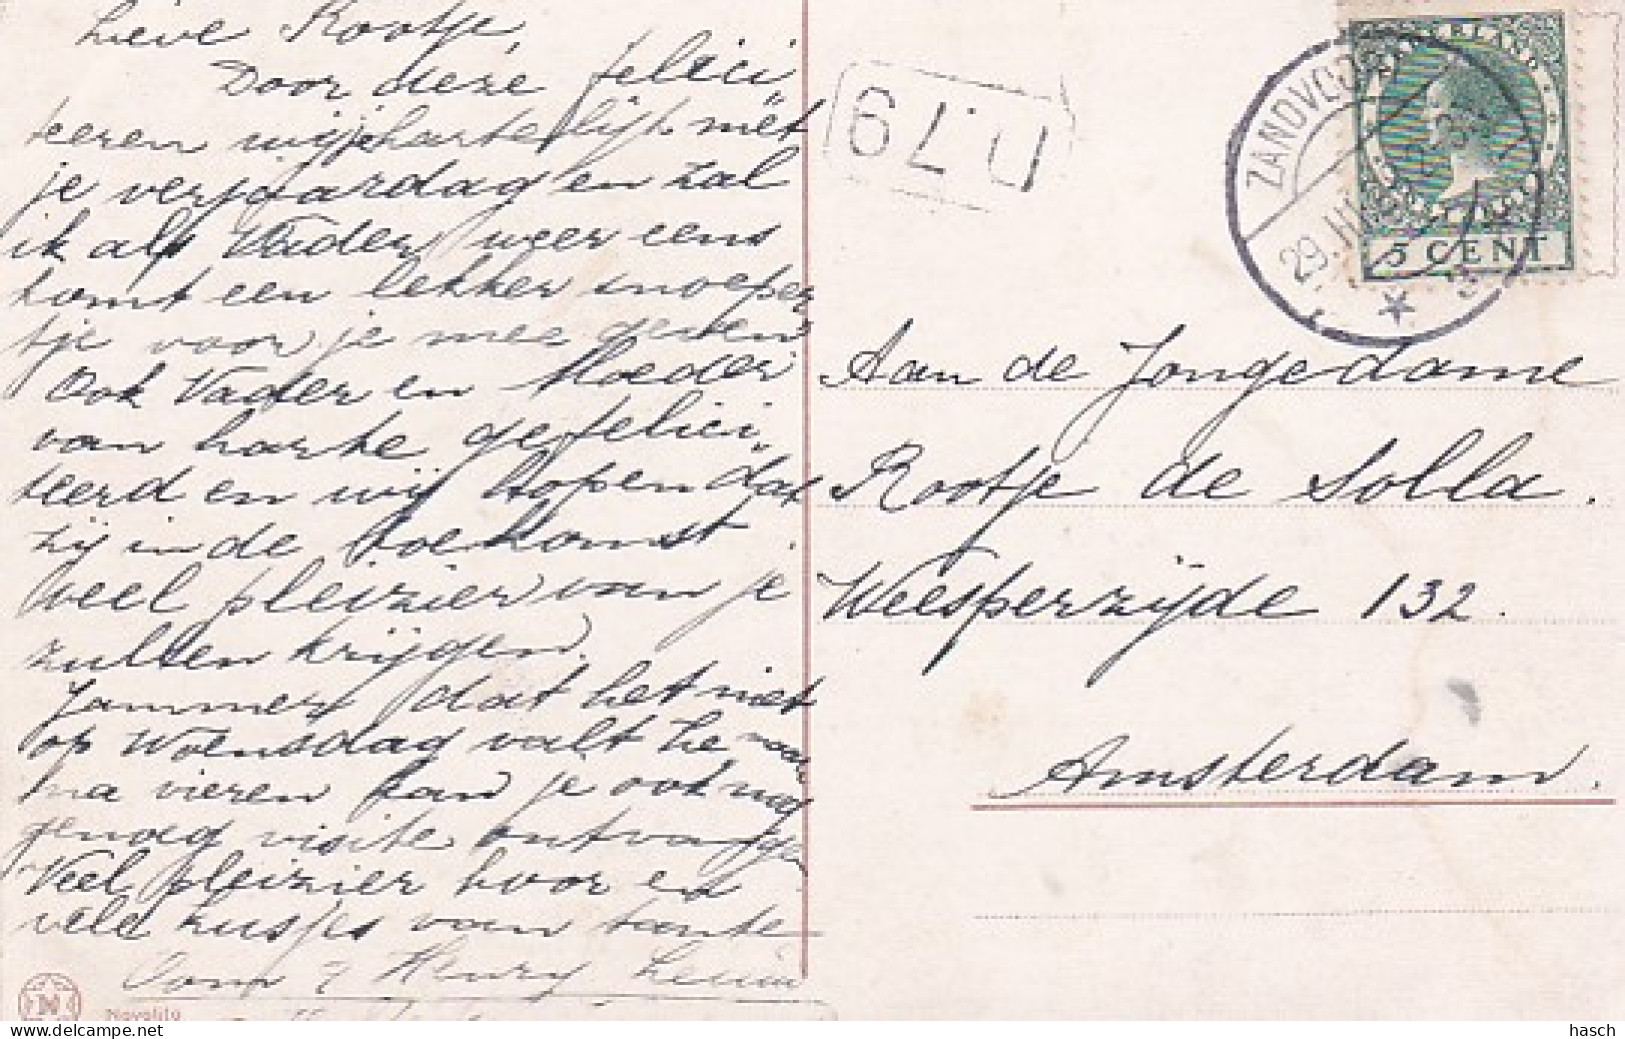 Lieve Rootje,
Door deze felici
teeren wij je hartelijk met
je verjaardag en zal
ik als Vader weer eens
komt een lekker snoeper
tje voor je mee geven
Ook Vader en Moeder
van harte gefelici
teerd en wij hopen dat
zij in de toekomst
veel pleizier van je
zullen krijgen.
Jammer dat het niet
op Woensdag valt he maar
na vieren kan je ook nog
genoeg visite ontvangen
Veel pleizier hoor en
vele kusjes van tante
Oom & Henry
N
Novolita
n.79
NEDERLAND
5 CENT
ZANDVOO
29.JU
Aan de Jongedame
Rootje de Solla.
Weesperzijde 132.
Amsterdam.
www.delcampe.net
hasch